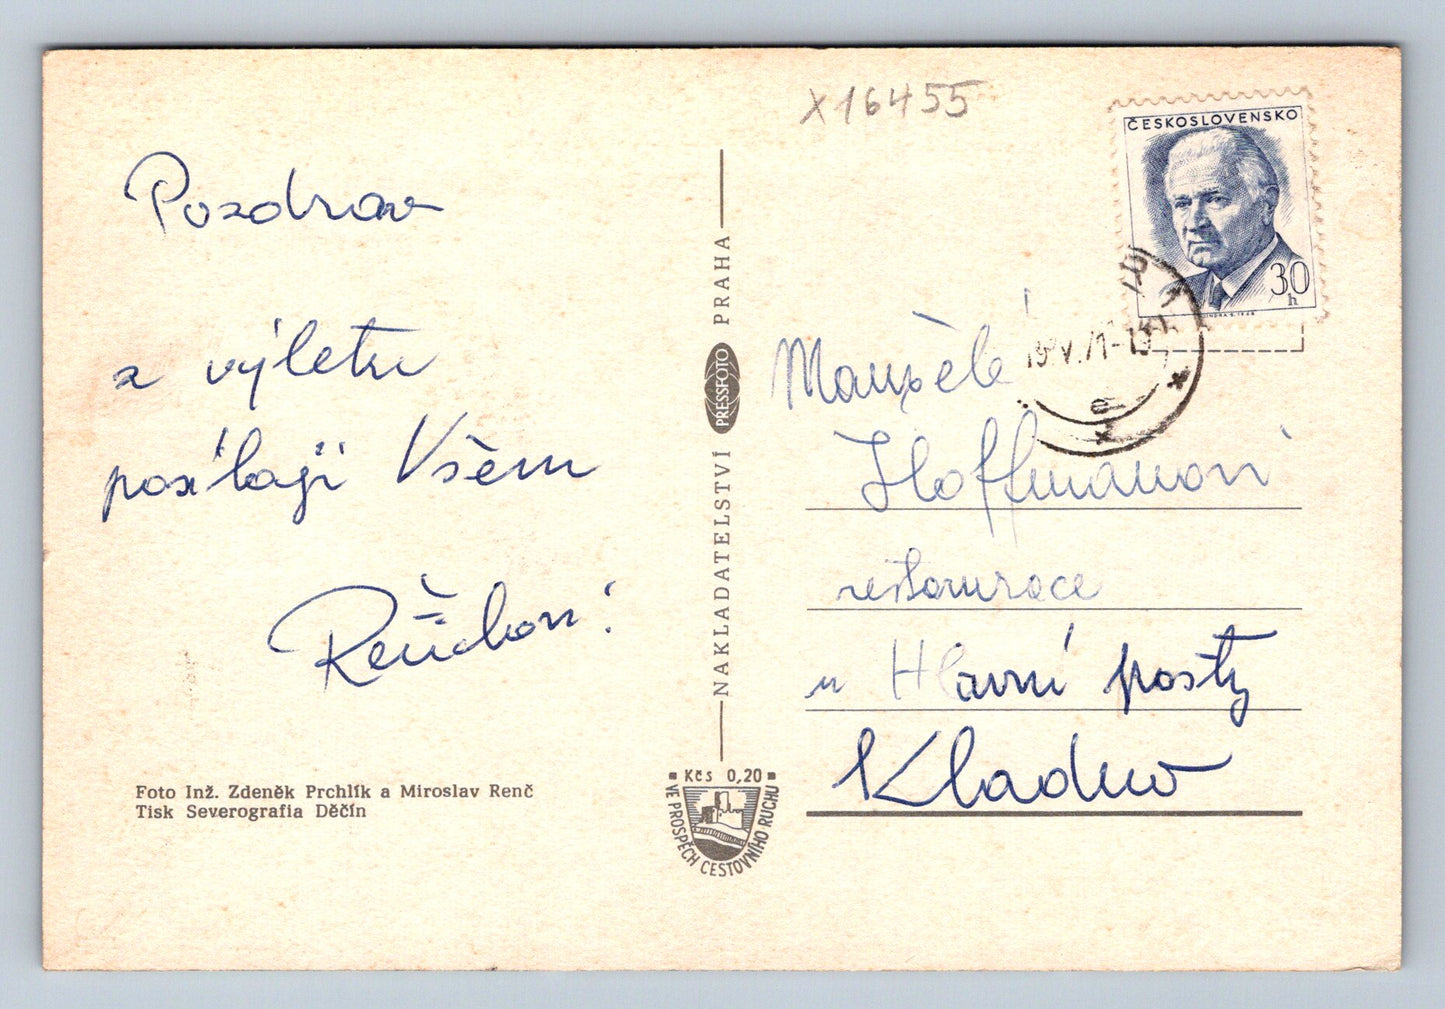 X16455
Pozdrav
z výletu
posílají Všem
ČESKOSLOVENSKO
30
h
Manželé
Hoffmanovi
restaurace
u Hlavní pošty
Kladno
NAKLADATELSTVÍ PRESSFOTO PRAHA
Foto Inž. Zdeněk Prchlík a Miroslav Renč
Tisk Severografia Děčín
Kčs 0,20
VE PROSPĚCH CESTOVNÍHO RUCHU